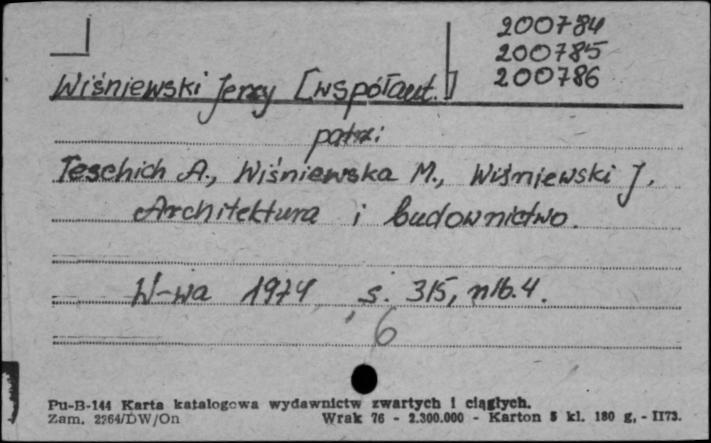 200784
200785
200786
Wiśniewski Jerzy [współaut.]
patrz:
Teschich A., Wiśniewska M., Wiśniewski J.
Architektura i budownictwo.
W-wa 1974 s. 315, nlb. 4.
6
Pu-B-144 Karta katalogowa wydawnictw zwartych i ciągłych.
Zam. 2264/DW/On Wrak 76 - 2.300.000 - Karton 5 kl. 180 g, - II73.